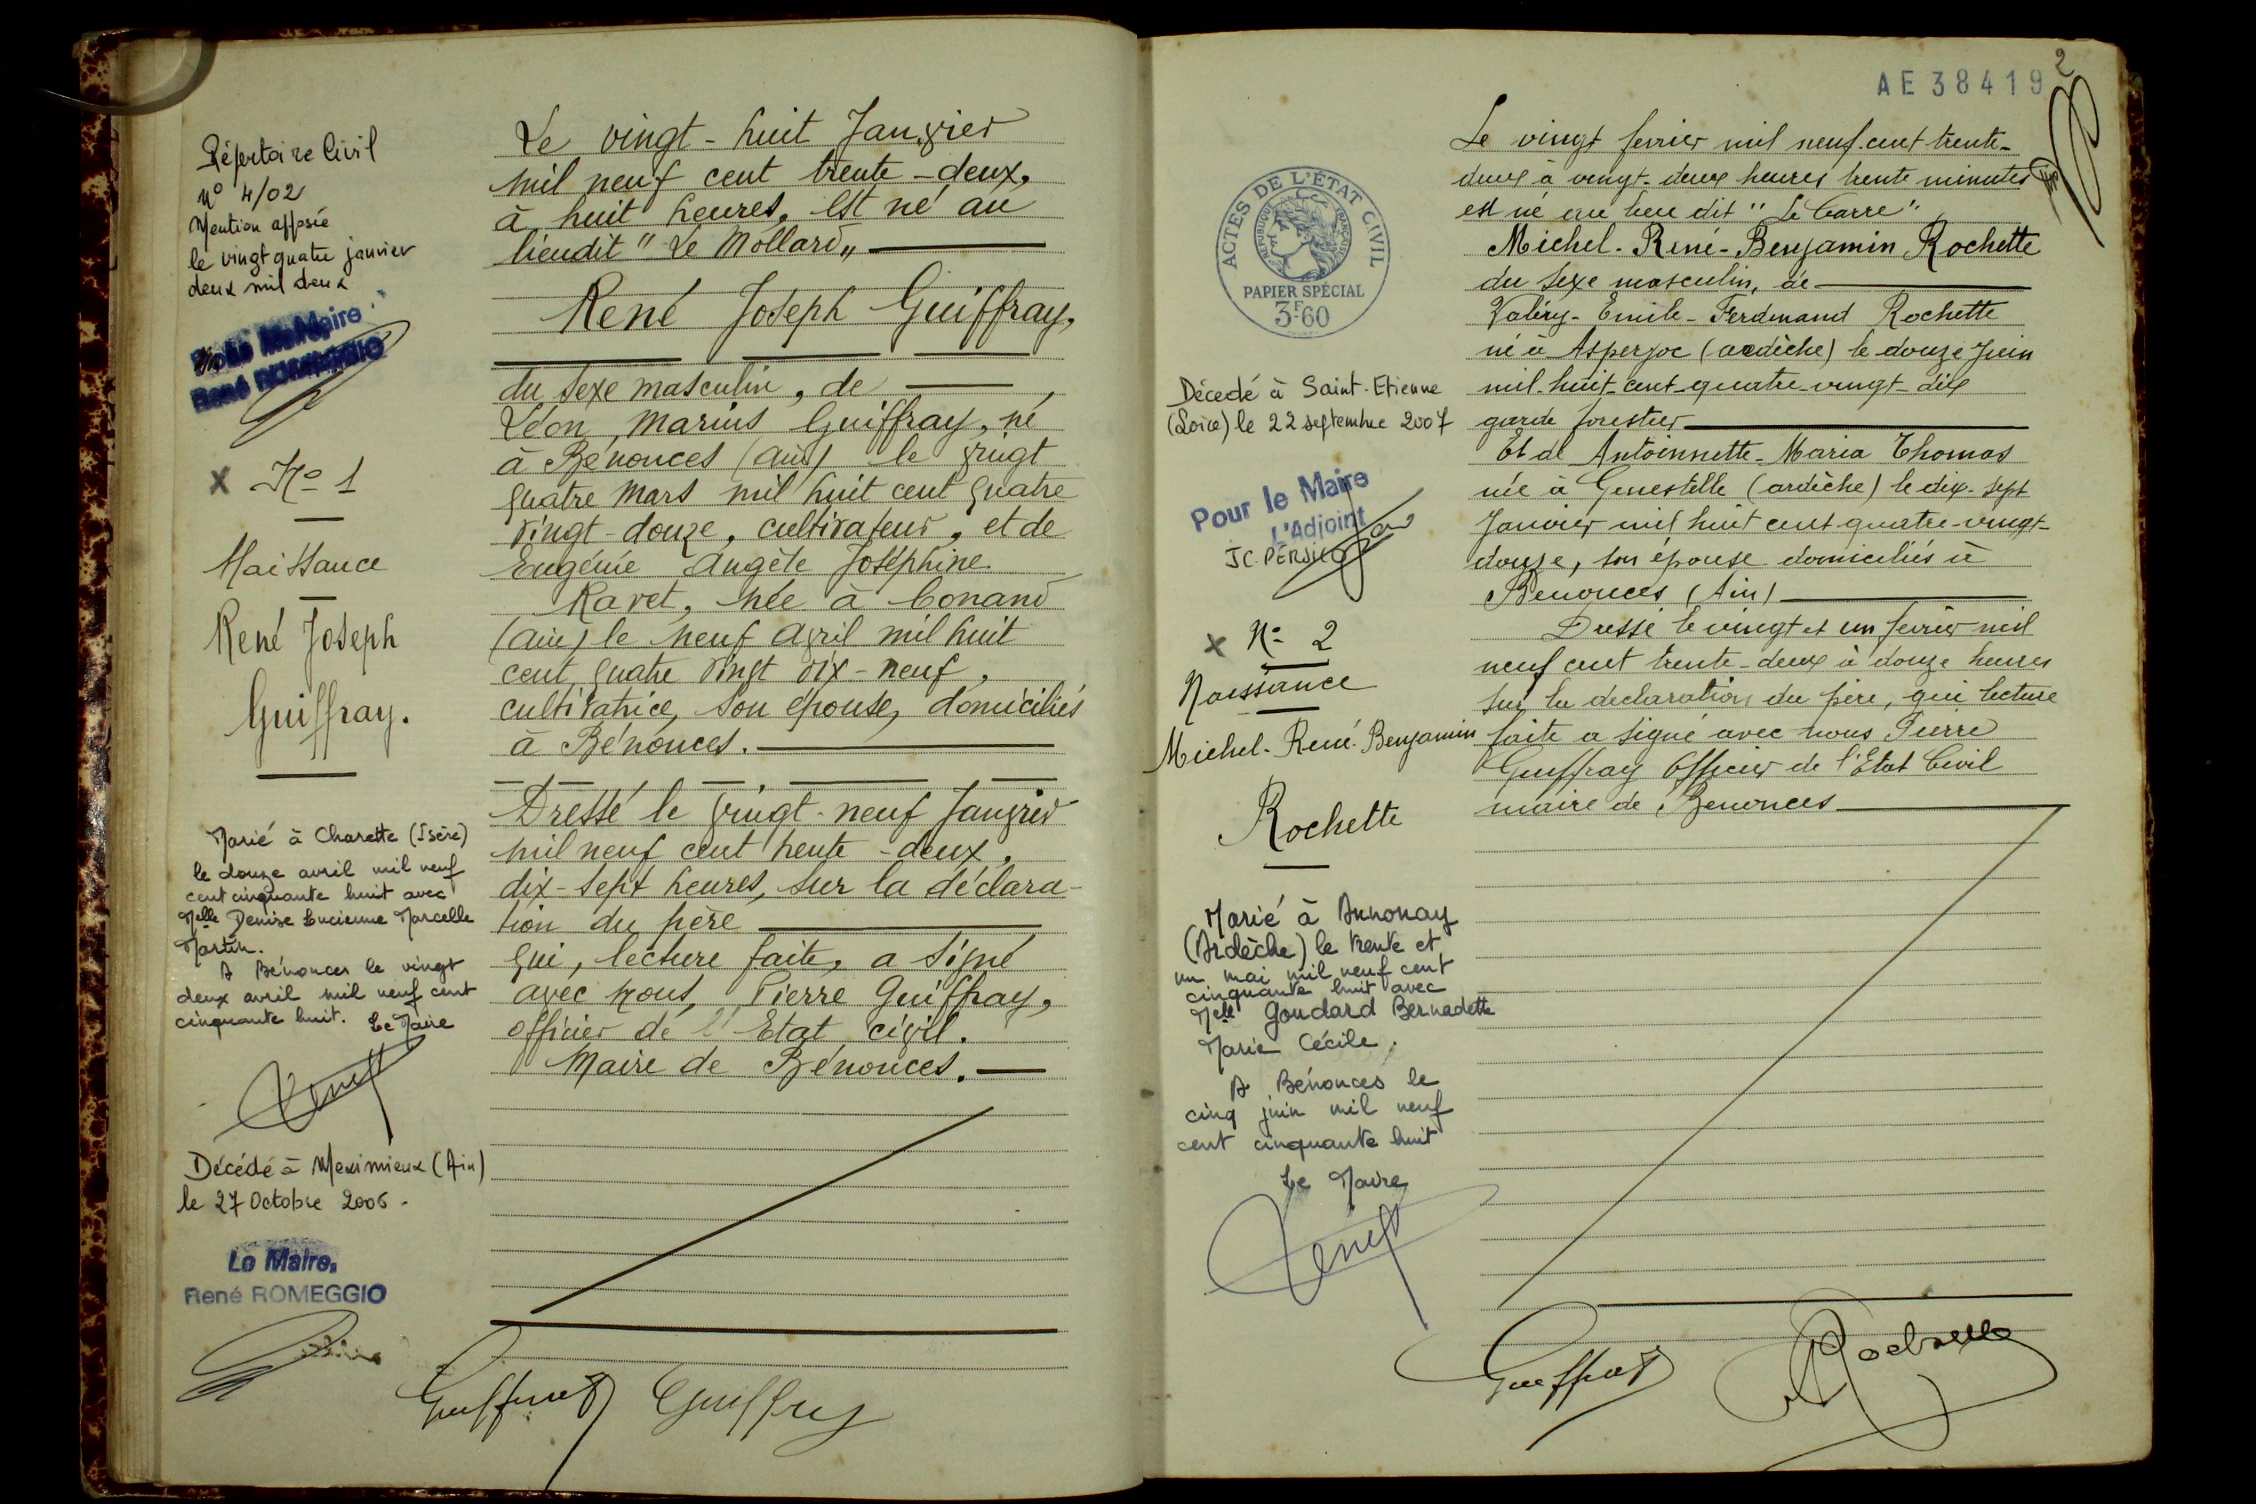 Répertoire Civil
N° 4/02
Mention apposée
le vingt quatre janvier
deux mil deux
Le Maire
René ROMEGGIO
X N° 1
Naissance
René Joseph
Guiffray.
Marié à Charette (Isère)
le douze avril mil neuf
cent cinquante huit avec
Melle Denise Lucienne Marcelle
Martin.
A Bénonces le vingt
deux avril mil neuf cent
cinquante huit. Le Maire
Décédé à Meximieux (Ain)
le 27 Octobre 2006.
Le Maire,
René ROMEGGIO
Le vingt-huit Janvier
mil neuf cent trente-deux,
à huit heures, est né au
lieudit "Le Mollard"
René Joseph Guiffray,
du sexe masculin, de
Léon Marius Guiffray, né
à Bénonces (Ain) le vingt
quatre Mars mil huit cent quatre
vingt-douze, cultivateur, et de
Eugénie Angèle Joséphine
Ravet, née à Conand
(Ain) le neuf avril mil huit
cent quatre vingt dix-neuf,
cultivatrice, son épouse, domiciliés
à Bénonces.
Dressé le vingt-neuf Janvier
mil neuf cent trente-deux,
dix-sept heures, sur la déclara-
tion du père
qui, lecture faite, a signé
avec nous, Pierre Guiffray,
officier de l'Etat civil.
Maire de Bénonces.
Guiffray Guiffray
AE 38419
2
ACTES DE L'ÉTAT CIVIL
RÉPUBLIQUE FRANÇAISE
PAPIER SPÉCIAL
3F60
Décédé à Saint-Etienne
(Loire) le 22 septembre 2007
Pour le Maire
L'Adjoint
JC. PERSICO
X N° 2
Naissance
Michel-René-Benjamin
Rochette
Marié à Annonay
(Ardèche) le trente et
un mai mil neuf cent
cinquante huit avec
Melle Goudard Bernadette
Marie Cécile.
A Bénonces le
cinq juin mil neuf
cent cinquante huit
Le Maire
Le vingt fevrier mil neuf cent trente-
deux à vingt-deux heures trente minutes
est né au lieu dit "Le Carre"
Michel-René-Benjamin Rochette
du sexe masculin, de
Valéry-Emile-Ferdinand Rochette
né à Asperjoc (ardèche) le douze Juin
mil-huit-cent-quatre-vingt-dix
garde forestier
Et de Antoinnette-Maria Thomas
née à Genestelle (ardèche) le dix-sept
Janvier mil huit cent quatre-vingt-
douze, son épouse domiciliés à
Benonces (Ain)
Dressé le vingt et un février mil
neuf cent trente-deux à douze heures
sur la declaration du père, qui lecture
faite a signé avec nous Pierre
Guiffray Officier de l'Etat Civil
maire de Benonces
Guiffray Rochette